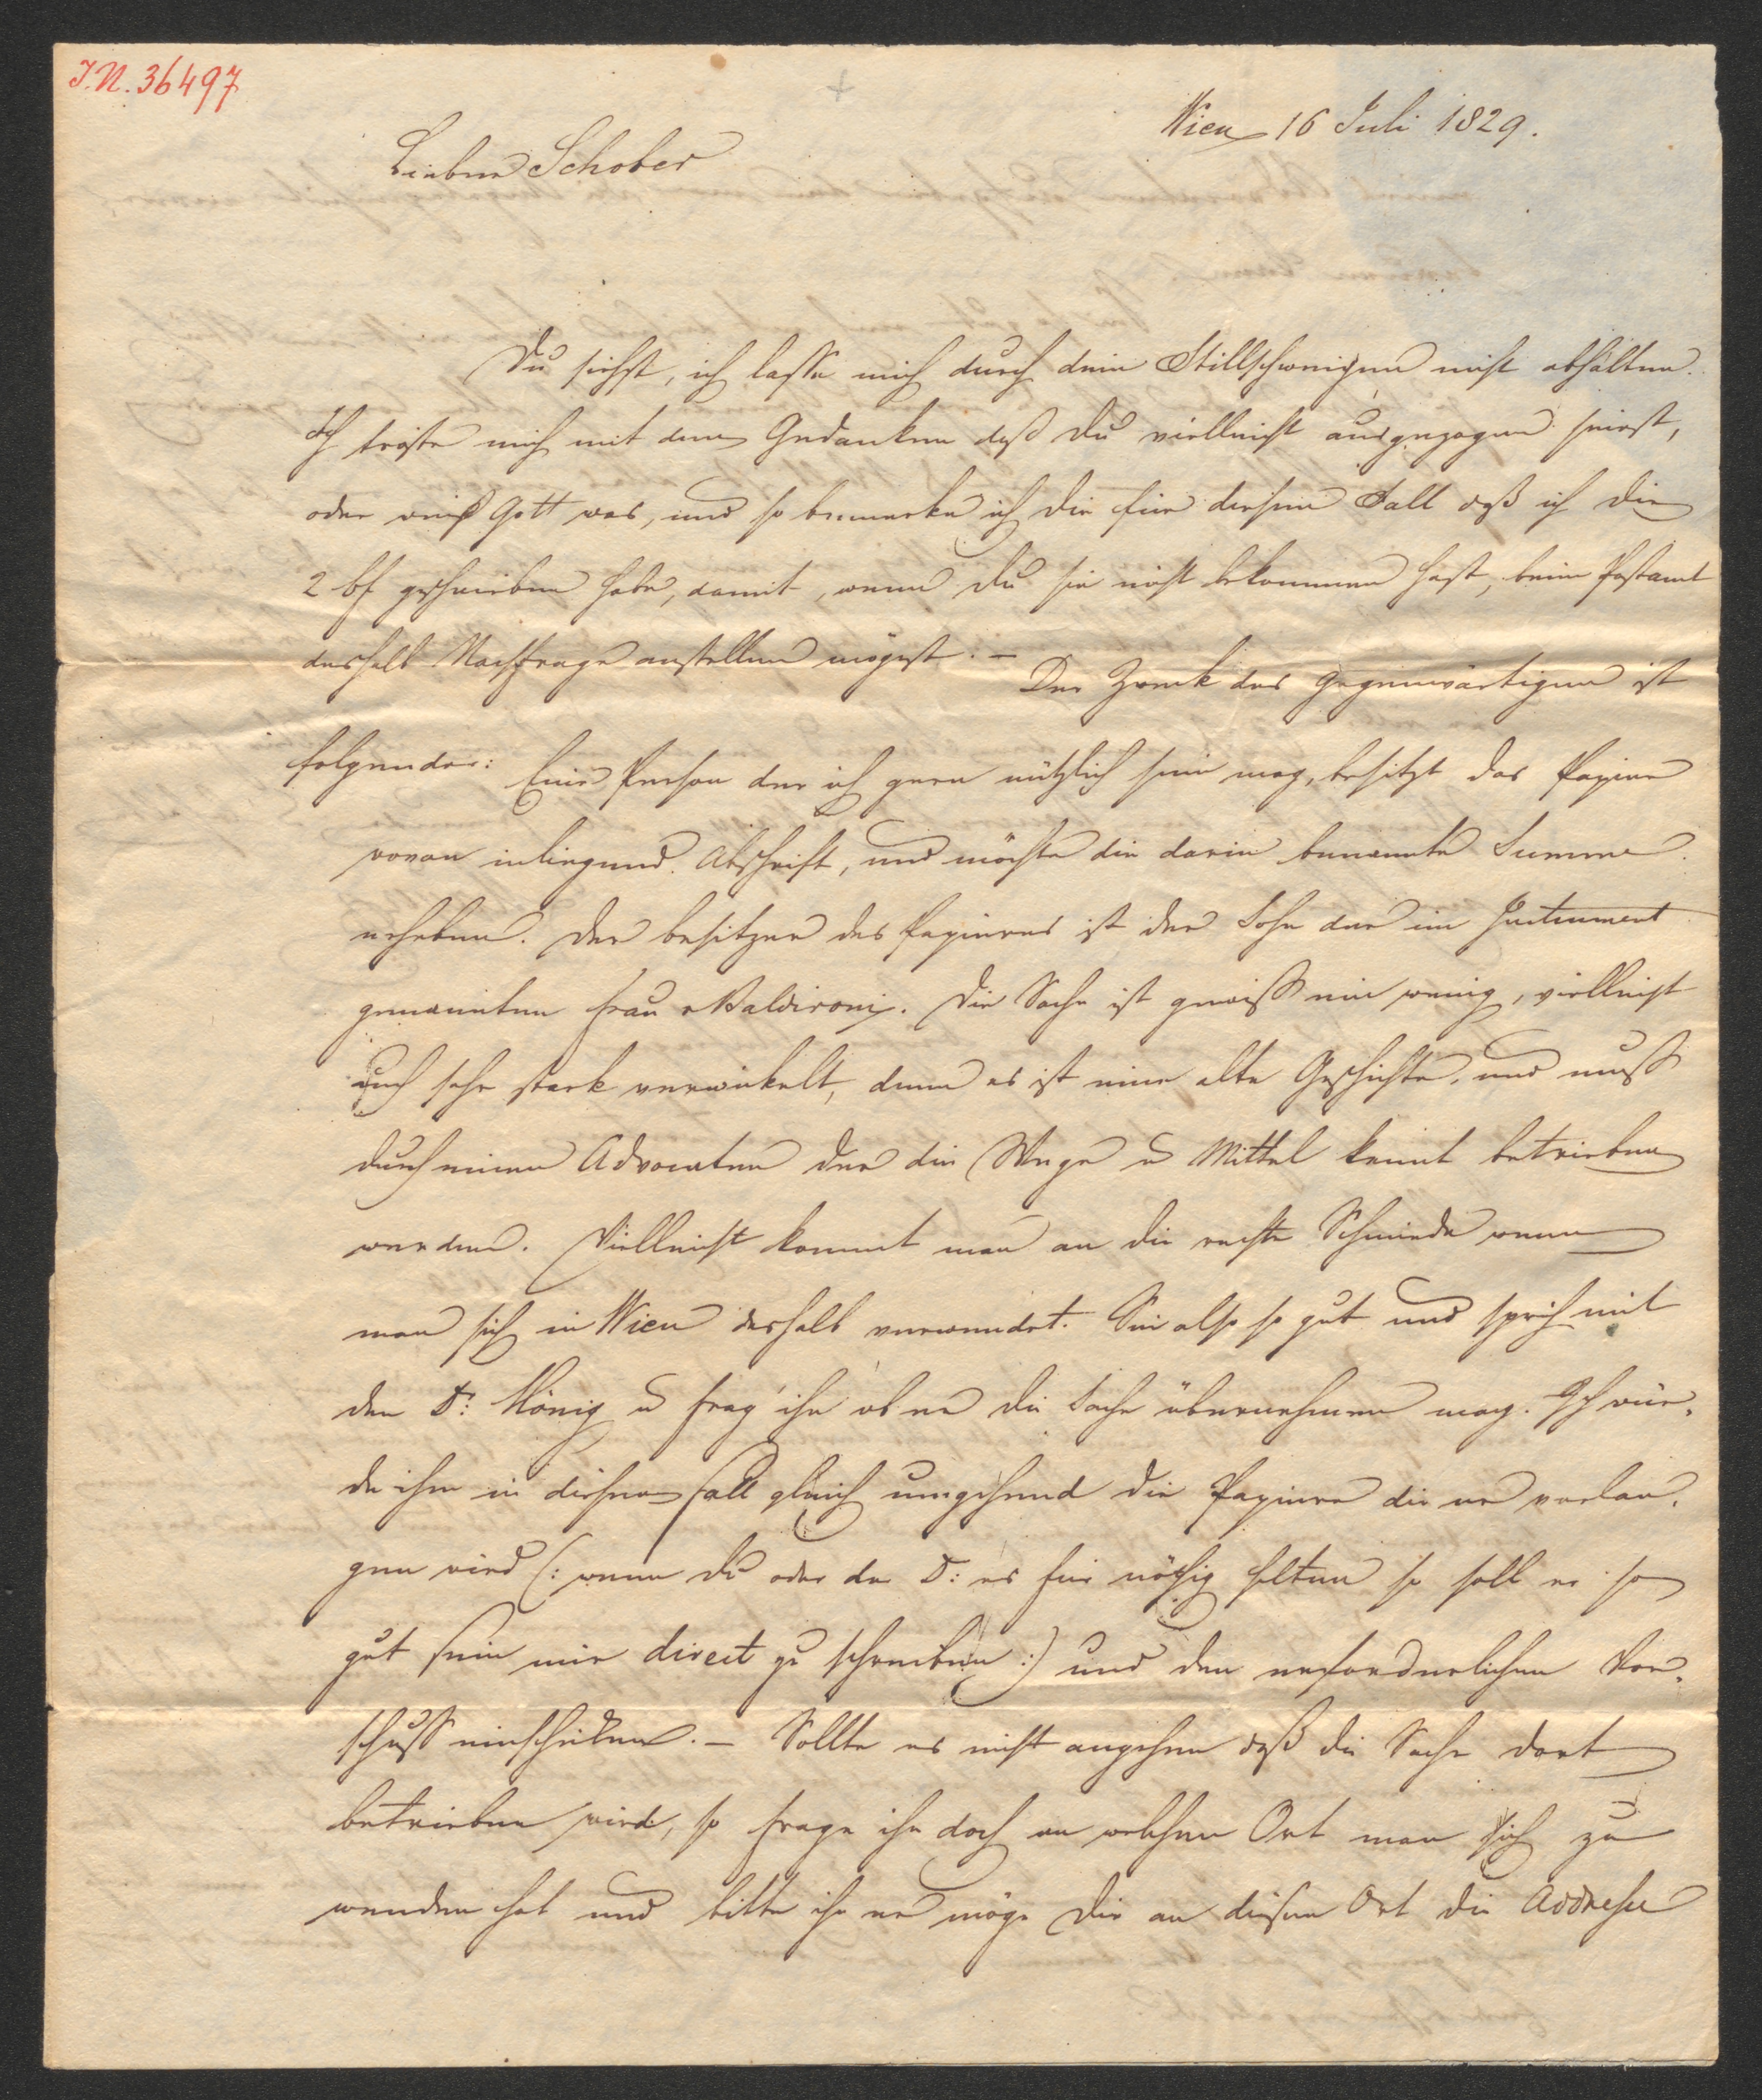 I.N. 36497
Wien 16 Juli 1829.
Lieber Schober
Du siehst, ich lasse mich durch dein Stillschweigen nicht abhalten.
Ich tröste mich mit dem Gedanken daß du vielleicht ausgezogen seiest,
oder weiß Gott was, und so bemerke ich dir für diesen Fall daß ich dir
2 bf geschrieben habe, damit, wenn du sie nicht bekommen hast, beim Postamt
deshalb Nachfrage anstellen mögest. – Der Zweck des Gegenwärtigen ist
folgender: Eine Person der ich gern nützlich sein mag, besitzt das Papier
wovon inliegend Abschrift, und möchte die darin benannte Summe
erheben. Der Besitzer des Papieres ist der Sohn der im Instrument
genannten Frau Baldironi. Die Sache ist gewiß ein wenig, vielleicht
auch sehr stark verwickelt, denn es ist eine alte Geschichte, und muß
durch einen Advocaten der die Wege u Mittel kennt betrieben
werden. Vielleicht kommt man an die rechte Schmiede wenn
man sich in Wien deshalb verwendet. Sei also so gut und sprich mit
den D: König u frag ihn ob er die Sache übernehmen mag. Ich wür-
de ihm in diesem Fall gleich umgehend die Papiere die er verlan-
gen wird (: wenn du oder der D: es für nöthig halten so soll er so
gut sein mir direct zu schreiben :) und den erforderlichen Vor-
schuß einschicken. – Sollte es nicht angehen daß die Sache dort
betrieben wird, so frage ihn doch an welchen Ort man sich zu
wenden hat und bitte ihn er möge dir an diesem Ort die Addresse